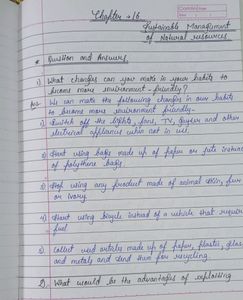 Chapter - 16
Sustainable Management
of Natural resources
* Question and Answers
1) What changes can you make in your habits to
become more environment - friendly?
Ans We can make the following changes in our habits
to become more environment friendly:
1) Switch off the lights, fans, TV, geyser and other
electrical appliances when not in use.
2) Start using bags made up of paper or jute instead
of polythene bags.
3) Stop using any product made of animal skin, fur
or ivory.
4) Start using bicycle instead of a vehicle that require
fuel
5) Collect used articles made up of paper, plastic, glass
and metals and send them for recycling.
2) What would be the advantages of exploiting